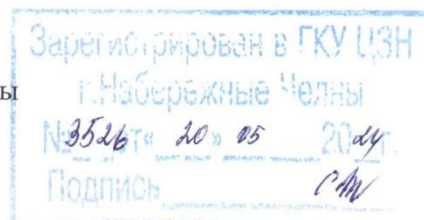 Зарегистрирован в ГКУ ЦЗН
ы
г.Набережные Челны
№ 3526 от « 20 » 05 2024 г.
Подпись